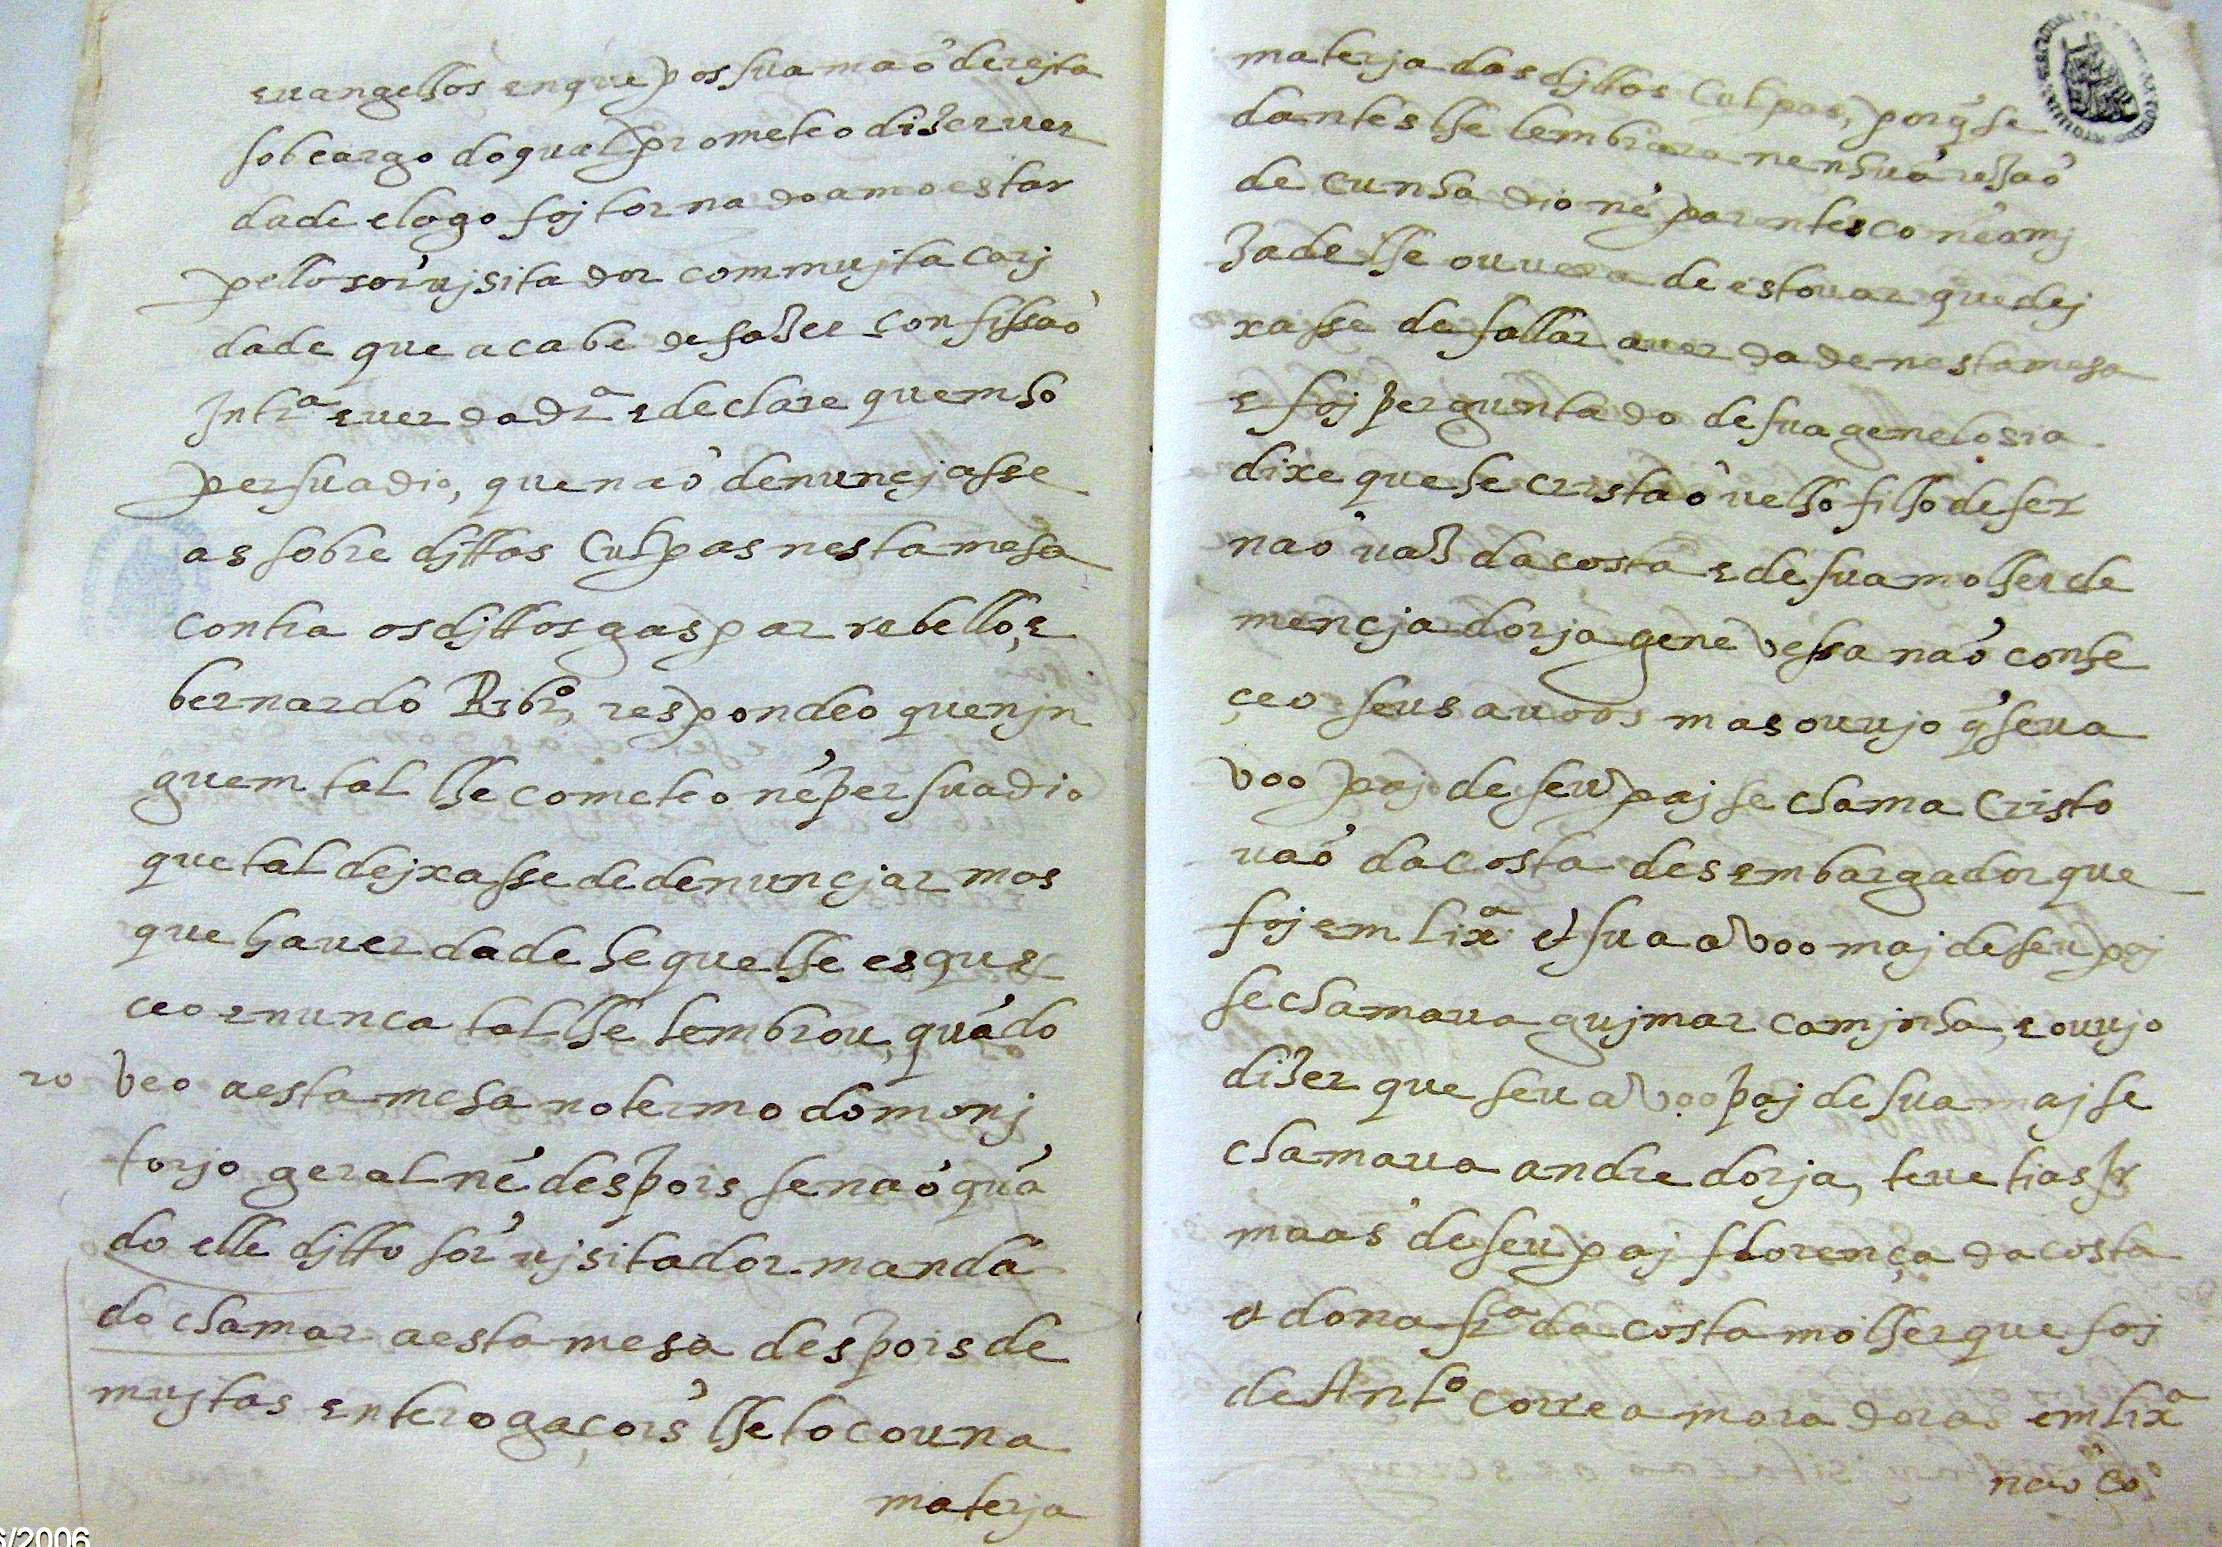 evangelhos en que pos sua maõ derejta
sob cargo do qual prometeo dizer ver
dade e logo foj tornado amoestar
pello sõr vjsitador com mujta carj
dade que acabe de fazer confissaõ
Intrª e verdadrª e declare quem ho
persuadio, que naõ denunçjasse
as sobre djttas Culpas nesta mesa
contra os djttos gaspar rebello, e
bernardo Ribrº, respondeo que njn
guem tal lhe cometeo nẽ persuadio
que tal dejxasse de denunçjar mas
que ha verdade he que lhe esque
ceo e nunca tal lhe lembrou, quãdo
ro veo a esta mesa no termo do monj
torjo geral nẽ despois se naõ quã
do elle djtto sõr vjsitador manda
do chamar a esta mesa despois de
mujtas enterogaçois lhe tocou na
materja
materja das djttas Culpas, porq̃ se
dantes lhe lembrara nenhuã rezaõ
de cunhadio nẽ parentesco nẽ amj
zade lhe ouvera de estovar que dej
xasse de fallar a verdade nesta mesa
e foj perguntado de sua genelosia
dixe que he cristaõ velho filho de fer
naõ vaz da costa e de sua molher de
mençja dorja genevesa naõ conhe
çeo seus avoos mas ouvjo q̃ seu a
voo paj de seu paj se chama Cristo
vaõ da costa desembargador que
foj em lixª et sua avoo maj de seu paj
se chamava gujmar camjnha, e ouvjo
dizer que seu avoo paj de sua maj se
chamava andre dorja, teve tias jr
maãs de seu paj florença da costa
et dona frcª da costa molher que foj
de Antº correa moradoras em lixª
naõ co